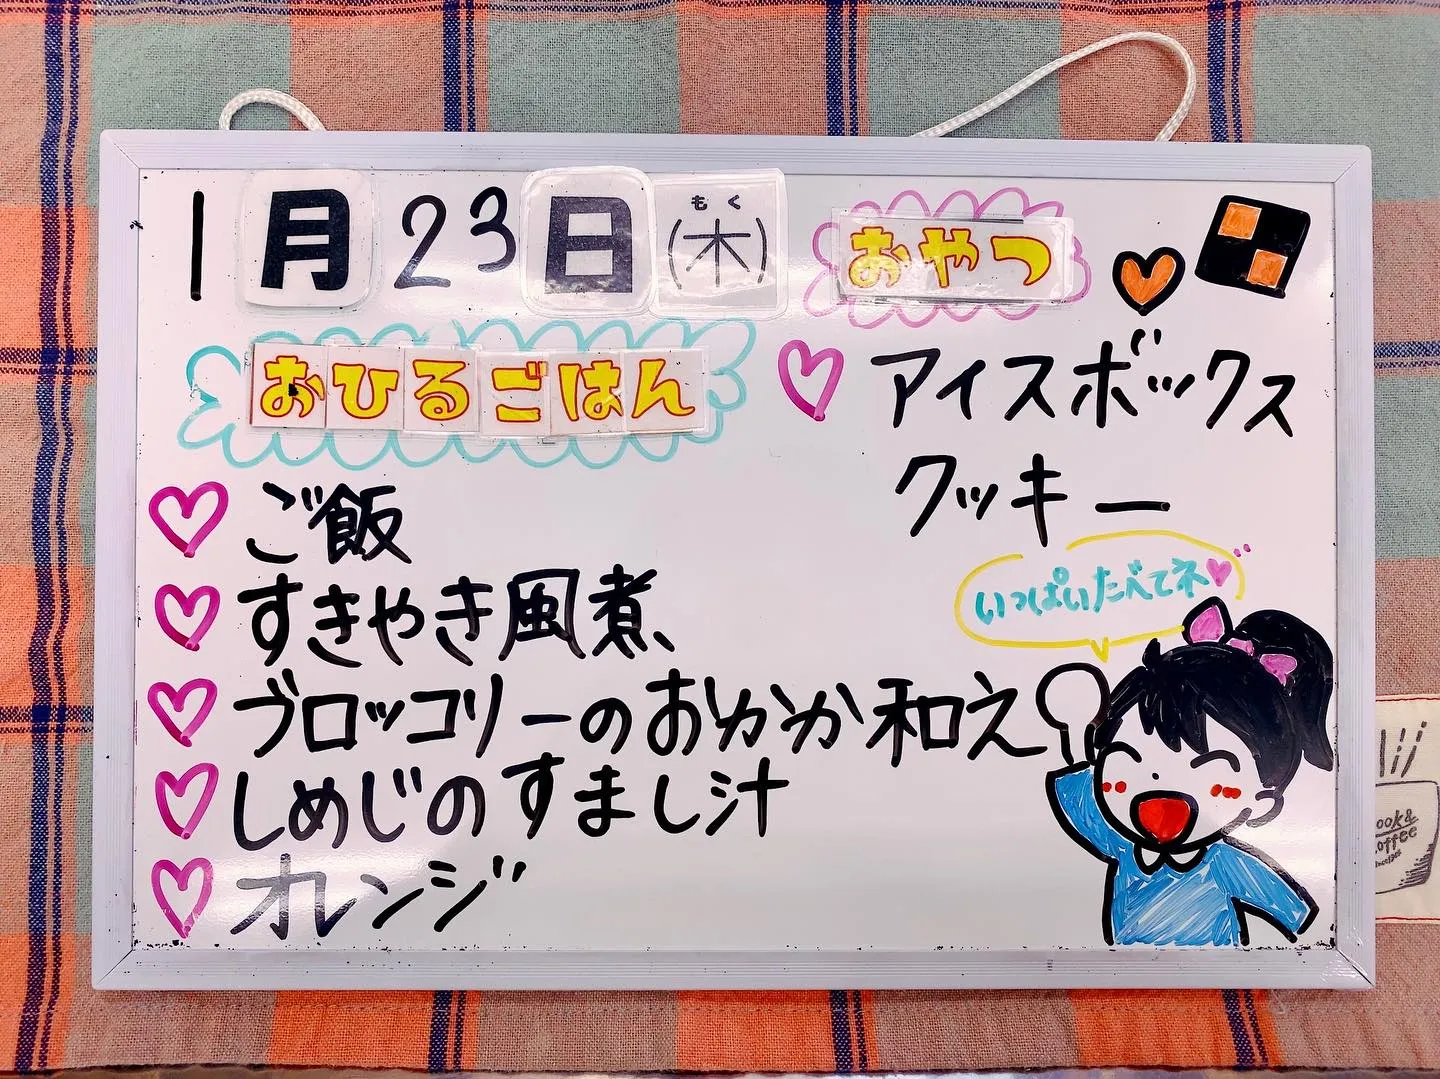 1月23日(木)
もく
おやつ
おひるごはん
アイスボックス
クッキー
いっぱいたべてネ
ご飯
すきやき風煮
ブロッコリーのおかか和え
しめじのすまし汁
オレンジ